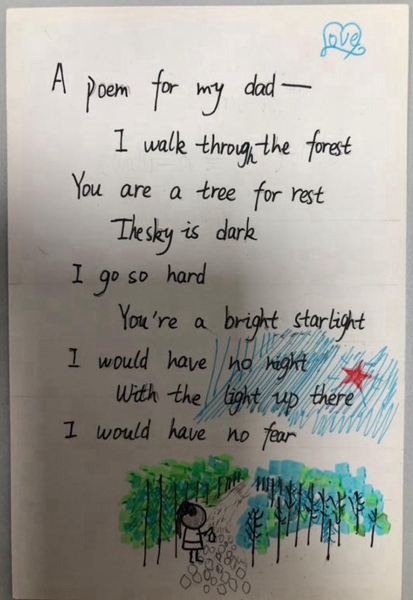 Love
A poem for my dad—
I walk through the forest
You are a tree for rest
The sky is dark
I go so hard
You're a bright starlight
I would have no night
With the light up there
I would have no fear